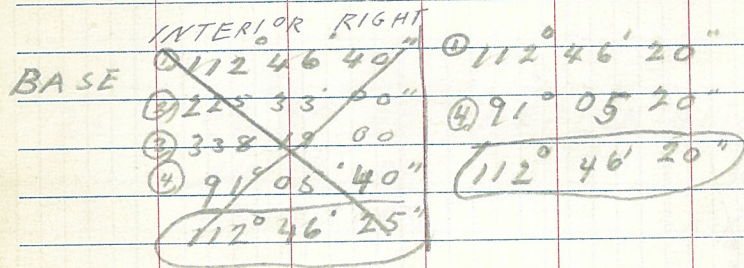 INTERIOR RIGHT
BASE
① 112° 46' 40"
② 225 33' 00"
③ 338 19 00
④ 91° 05' 40"
112° 46' 25"
① 112° 46' 20"
④ 91° 05 20"
112° 46' 20"